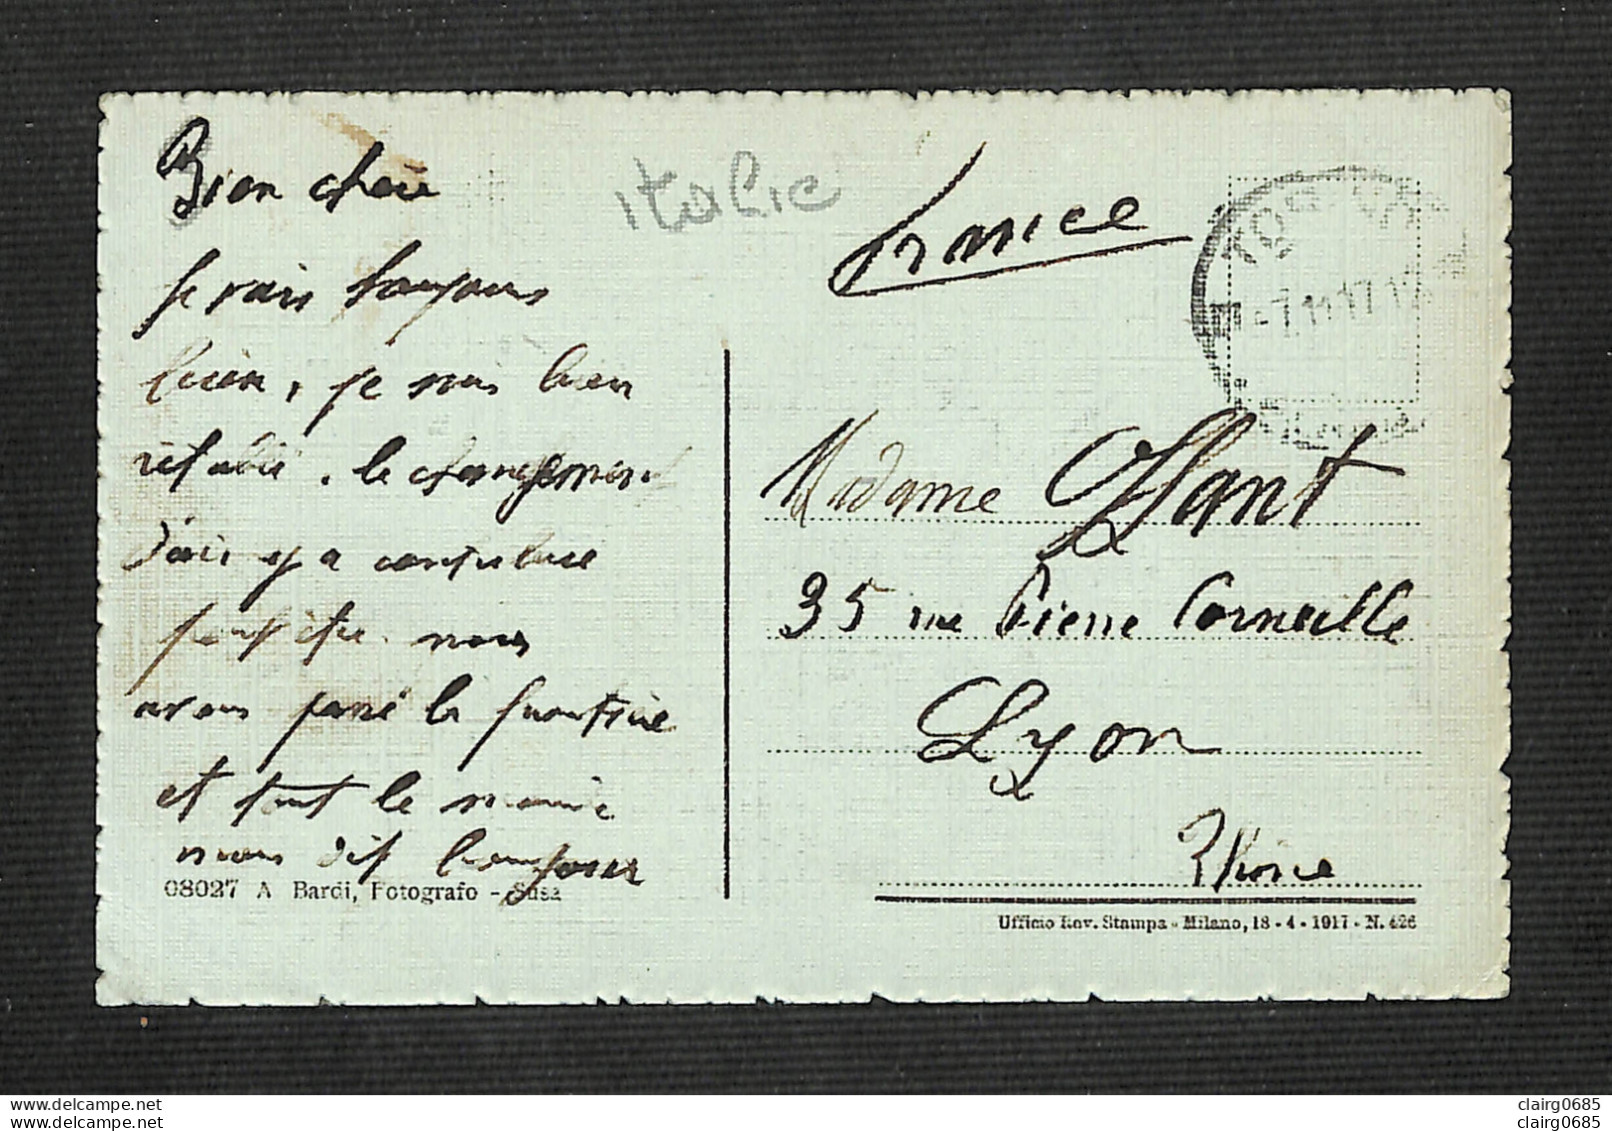 Bien chère
Je vais toujours
bien, je suis bien
rétabli. le changement
d'air y a contribué
peut être. nous
avons passé la frontière
et tout le monde
nous dit bonjour
08027 A Bardi, Fotografo - Susa
Italie
France
-7.11.17.12
Madame Plant
35 rue Pierre Corneille
Lyon
Rhône
Ufficio Rev. Stampa - Milano, 18 - 4 - 1917 - N. 426
clairg0685
clairg0685
clairg0685
clairg0685